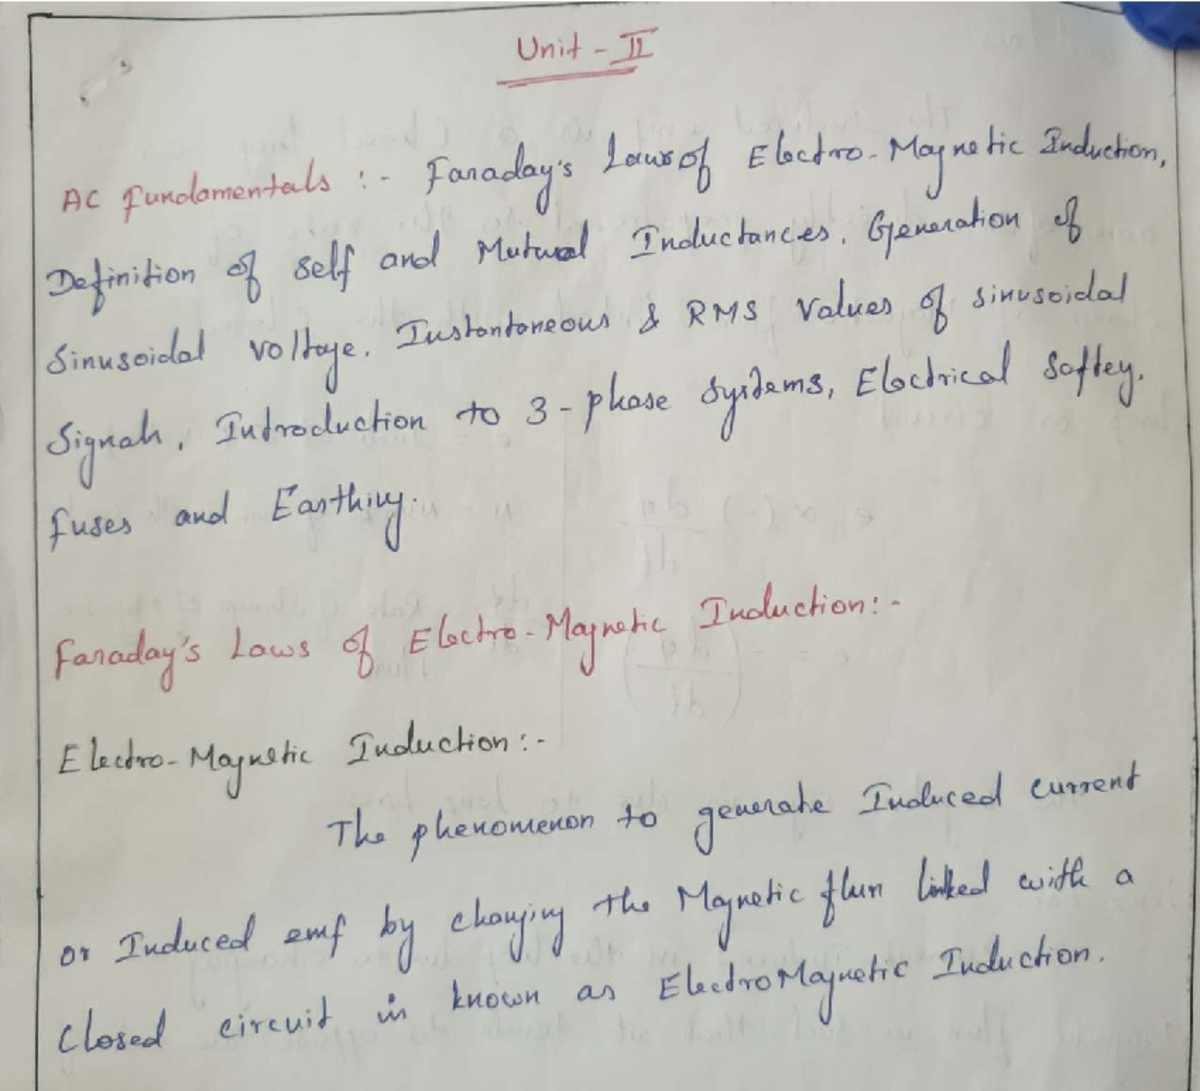 Unit - II
AC fundamentals :- Faraday's Laws of Electro-Magnetic Induction,
Definition of self and Mutual Inductances. Generation of
Sinusoidal voltage. Instantaneous & RMS values of sinusoidal
Signals, Introduction to 3-phase systems, Electrical Saftey.
fuses and Earthing.
Faraday's Laws of Electro-Magnetic Induction:-
Electro-Magnetic Induction:-
The phenomenon to generate Induced current
or Induced emf by changing the Magnetic flux linked with a
Closed circuit is known as ElectroMagnetic Induction.